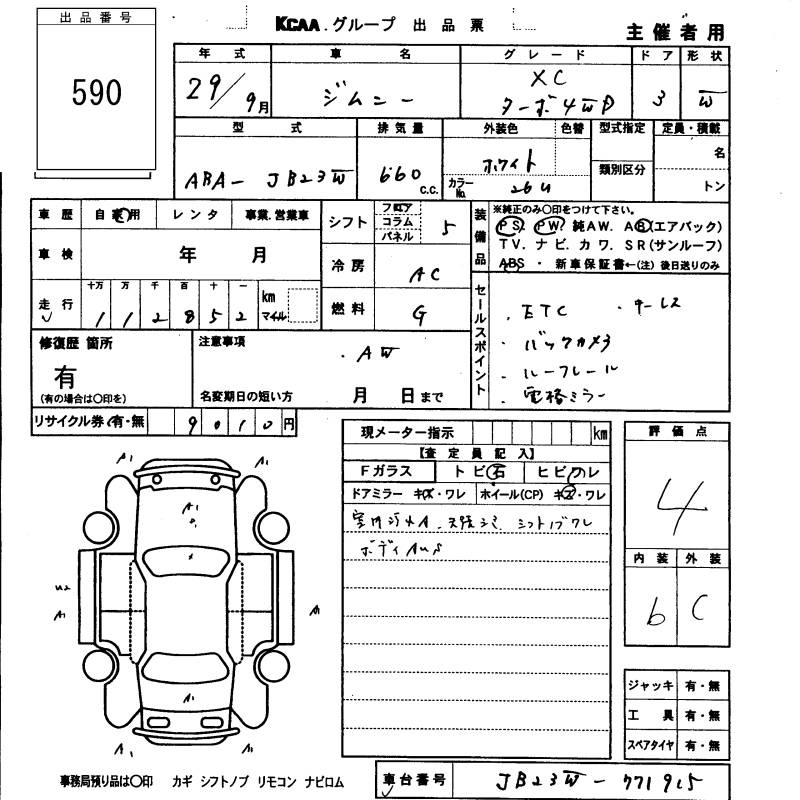 出品番号
590
KCAA.グループ 出品票
主催者用
年式 車名 グレード ドア 形状
29/9月 ジムニー XC ターボ4WD 3 W
型式 排気量 外装色 色替 型式指定 定員・積載
ABA-JB23W 660 c.c. ホワイト カラーNo. 26U 類別区分 名 トン
車歴 自家用 レンタ 事業.営業車 シフト フロア コラム パネル 5
装備品 ※純正のみ〇印をつけて下さい。
PS. PW. 純AW. AB(エアバック)
TV. ナビ. カワ. SR(サンルーフ)
ABS ・ 新車保証書←(注)後日送りのみ
車検 年 月 冷房 AC
走行 十万 万 千 百 十 一 km マイル
112852
燃料 G
セールスポイント
・ETC ・キーレス
・バックカメラ
・ルーフレール
・電格ミラー
修復歴 箇所 有 (有の場合は〇印を)
注意事項 ・AW
名変期日の短い方 月 日まで
リサイクル券(有・無 9010円
現メーター指示 km
【査定員記入】
Fガラス トビ石 ヒビワレ
ドアミラー キズ・ワレ ホイール(CP) キズ・ワレ
シフトノブワレ
ボディAUS
評価点
4
内装 外装
b C
A1 A1
A1
P1
x
U2
A1 A1
A1
A1 A1
ジャッキ 有・無
工具 有・無
スペアタイヤ 有・無
事務局預り品は〇印 カギ シフトノブ リモコン ナビロム
車台番号 JB23W-771915